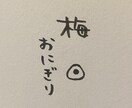 梅
おにぎり